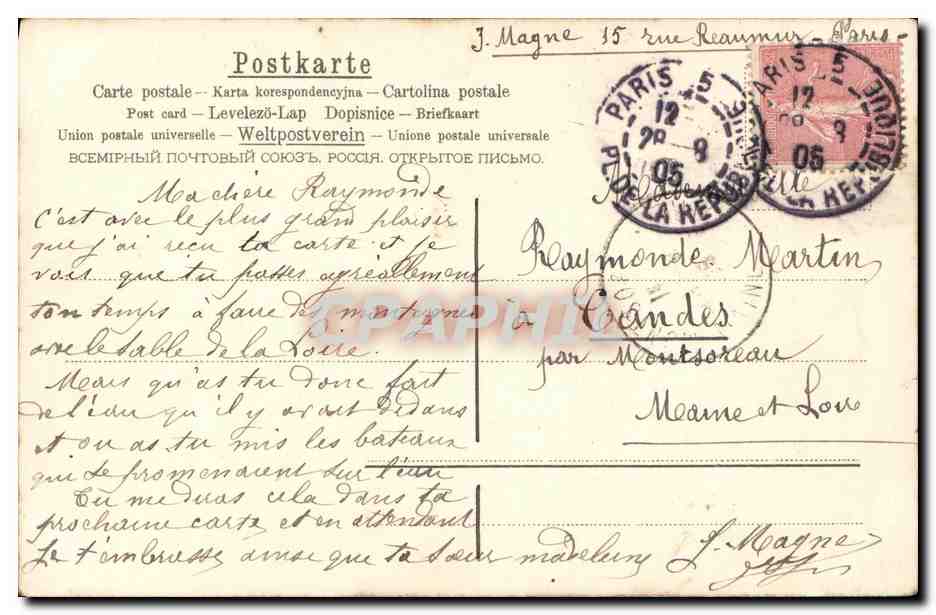 J. Magne 15 rue Reaumur - Paris -
Postkarte
Carte postale – Karta korespondencyjna – Cartolina postale
Post card – Levelező-Lap Dopisnice – Briefkaart
Union postale universelle – Weltpostverein – Unione postale universale
ВСЕМІРНЫЙ ПОЧТОВЫЙ СОЮЗЪ. РОССІЯ. ОТКРЫТОЕ ПИСЬМО.
PARIS 5
12
28 8
05
PL. DE LA REPUBLIQUE
PARIS 5
12
8
05
LA REPUBLIQUE
Ma chère Raymonde
c'est avec le plus grand plaisir
que j'ai reçu ta carte et je
vois que tu passes agréablement
ton temps à faire des montagnes
avec le sable de la Loire.
Mais qu'as tu donc fait
de l'eau qu'il y avait dedans
et ou as tu mis les bateaux
qui se promenaient sur l'eau
Tu me diras cela dans ta
prochaine carte et en attendant
Je t'embrasse ainsi que ta sœur madeleine J. Magne
Raymonde Martin
à Candes
par Montsoreau
Maine et Loire
CPAPHIL